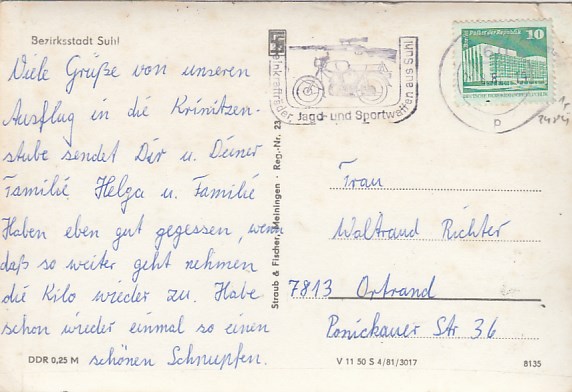 Bezirksstadt Suhl
Viele Grüße von unseren
Ausflug in die Krinitzen-
stube sendet Dir u. Deiner
Familie Helga u. Familie
Haben eben gut gegessen, wenn
daß so weiter geht nehmen
die Kilo wieder zu. Habe
schon wieder einmal so einen
schönen Schnupfen.
DDR 0,25 M
Straub & Fischer, Meiningen · Reg.-Nr. 23
Kleinkrafträder, Jagd- und Sportwaffen aus Suhl
Palast der Republik 10
p
Frau
Waltraud Richter
7813 Ortrand
Ponickauer Str 36
V 11 50 S 4/81/3017
8135